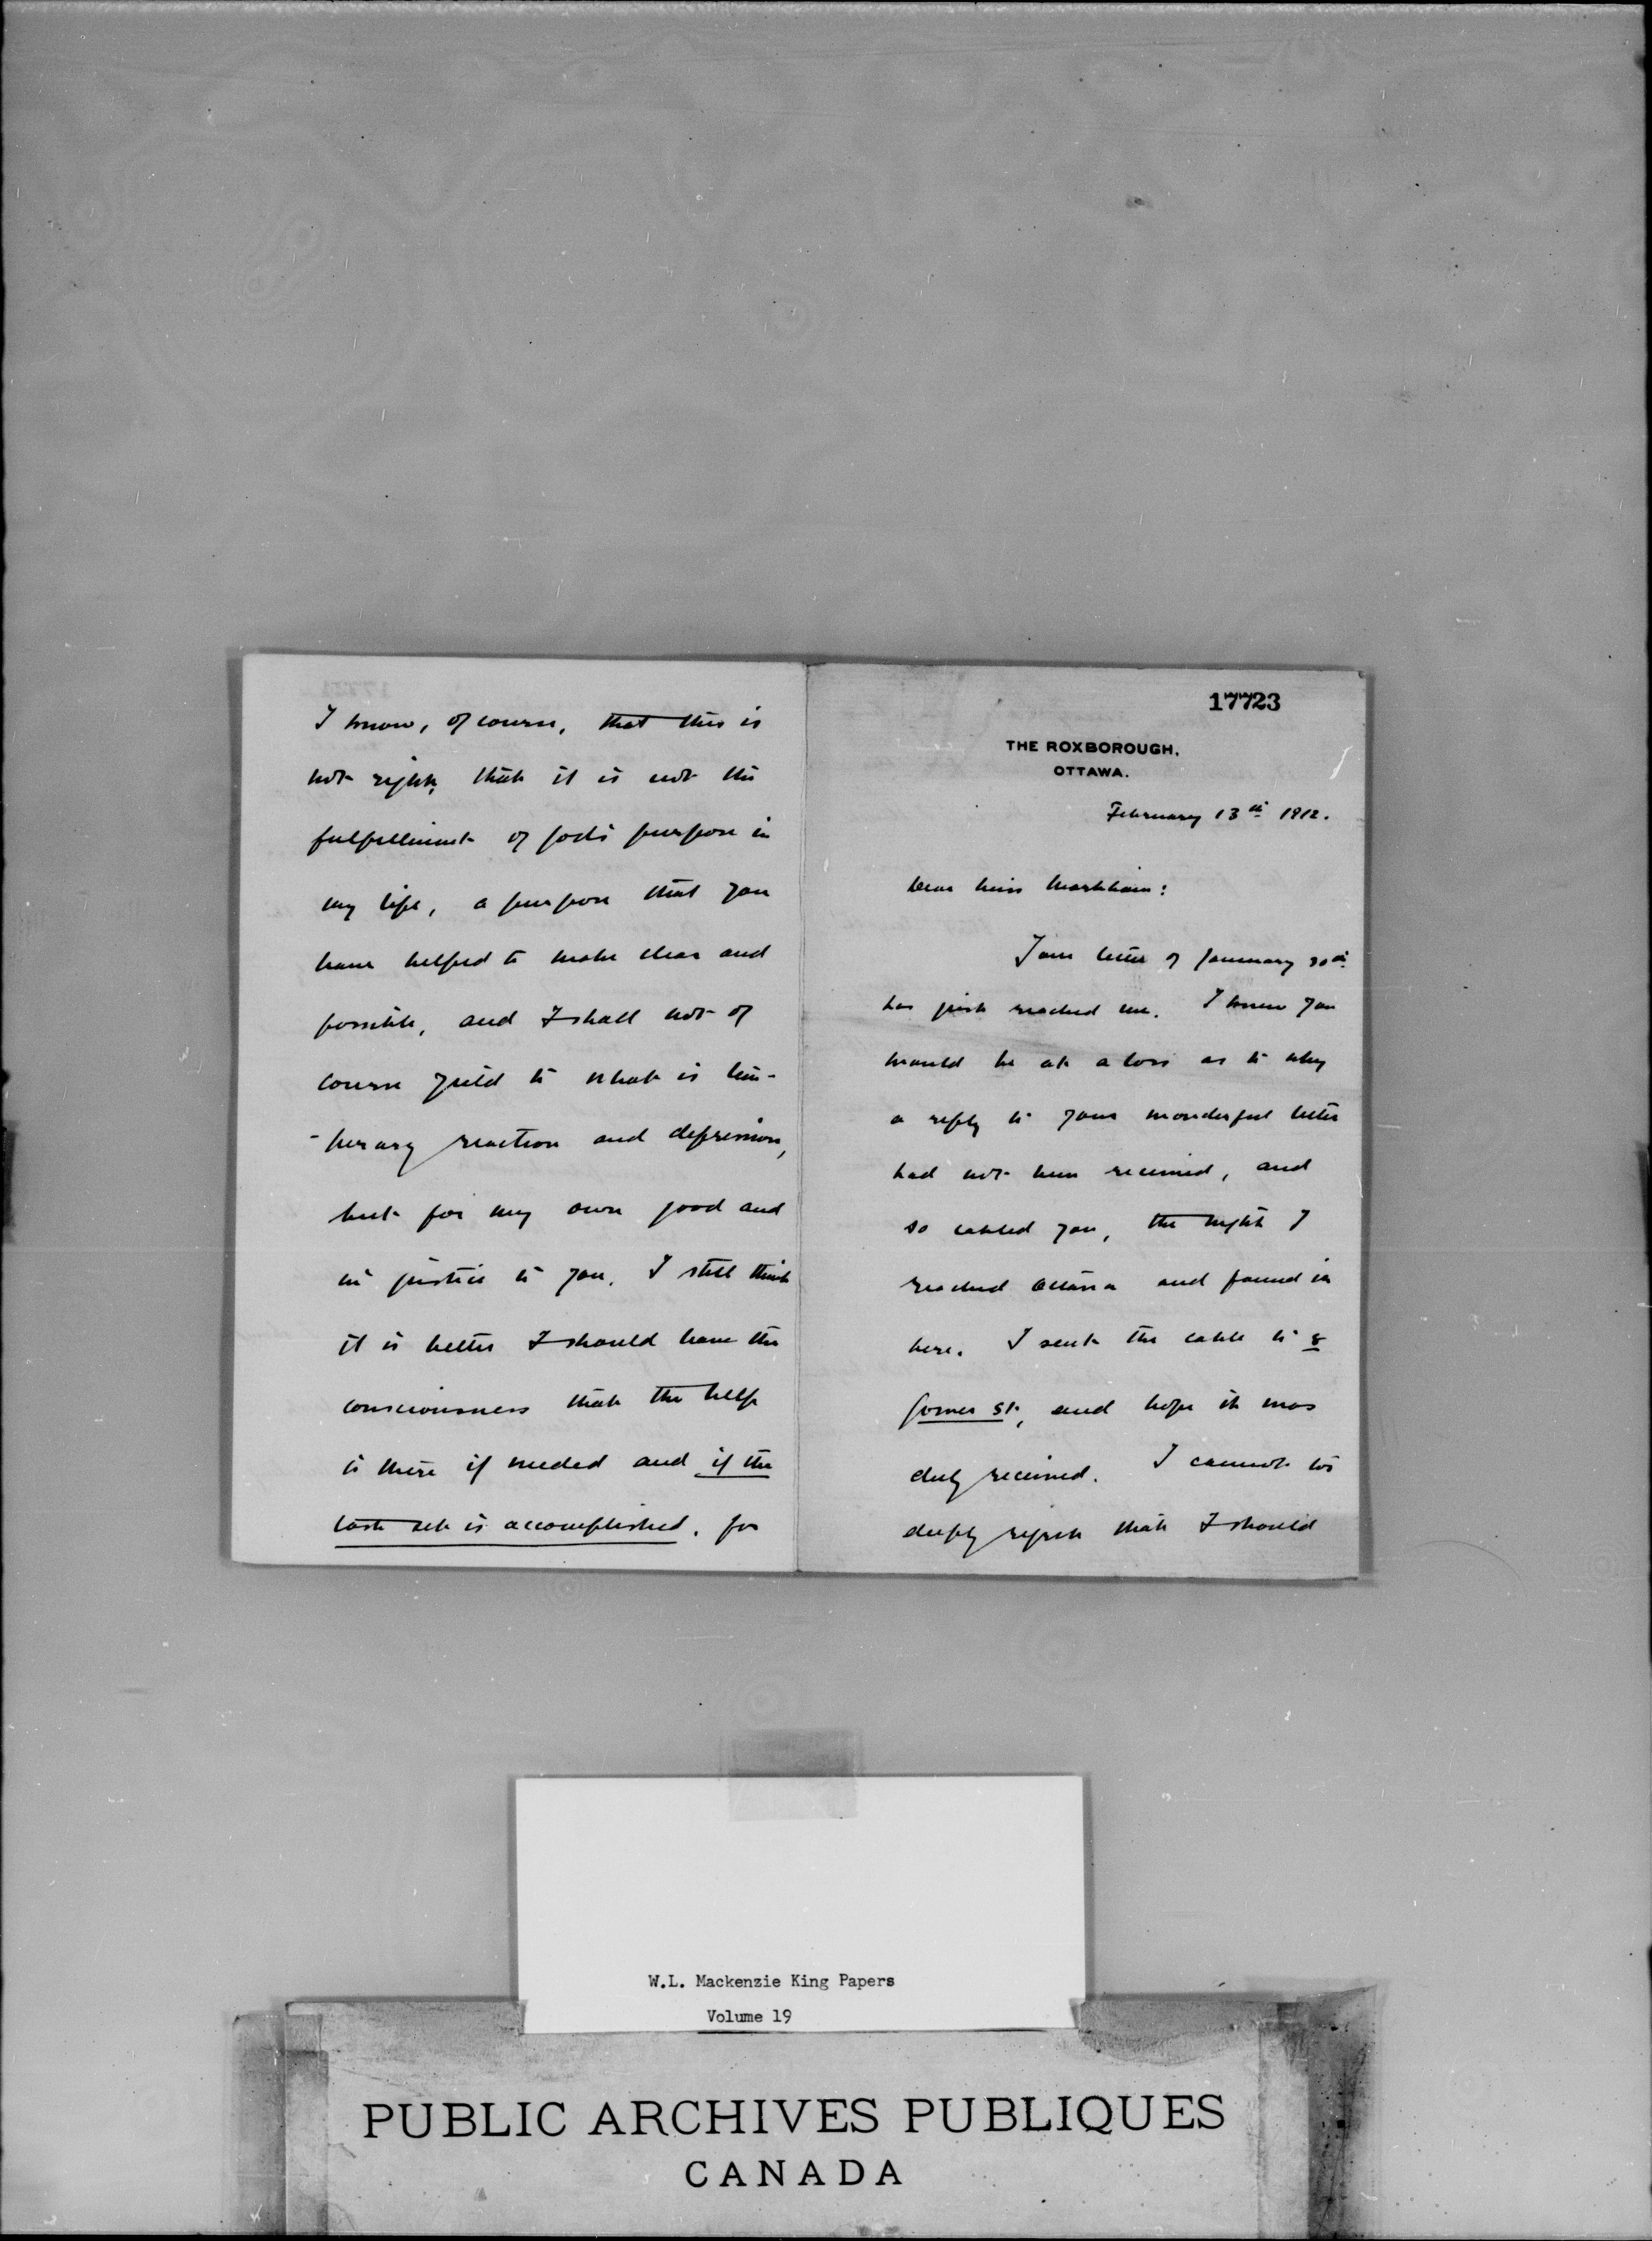 I know, of course, that this is
not right, that it is not the
fulfillment of God's purpose in
my life, a purpose that you
have helped to make clear and
possible, and I shall not of
course yield to what is tem-
-porary reaction and depression,
but for my own good and
in justice to you, I still think
it is better I should have the
consciousness that the help
is there if needed and if the
task set is accomplished, for
17723
THE ROXBOROUGH.
OTTAWA.
February 13th 1912.
Dear Miss Markham:
Your letter of January 30th
has just reached me. I knew you
would be at a loss as to why
a reply to your wonderful letter
had not been received, and
so cabled you, the night I
reached Ottawa and found it
here. I sent the cable to 8
Gower St, and hope it was
duly received. I cannot too
deeply regret that I should
W.L. Mackenzie King Papers
Volume 19
PUBLIC ARCHIVES PUBLIQUES
CANADA